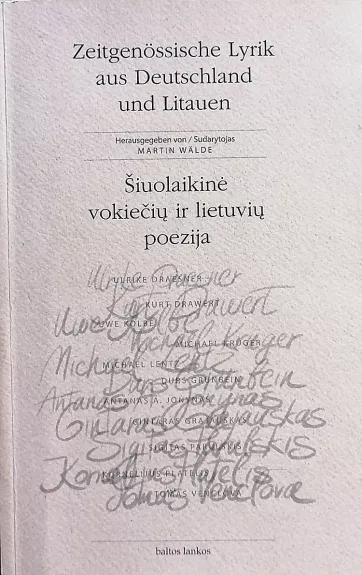 Zeitgenössische Lyrik
aus Deutschland
und Litauen
Herausgegeben von / Sudarytojas
MARTIN WÄLDE
Šiuolaikinė
vokiečių ir lietuvių
poezija
Ulrike Draesner
ULRIKE DRAESNER
Kurt Drawert
KURT DRAWERT
Uwe Kolbe
UWE KOLBE
Michael Krüger
MICHAEL KRÜGER
Michael Lentz
MICHAEL LENTZ
Durs Grünbein
DURS GRÜNBEIN
Antanas Jonynas
ANTANAS A. JONYNAS
Gintaras Grajauskas
GINTARAS GRAJAUSKAS
Sigitas Parulskis
SIGITAS PARULSKIS
Kornelijus Platelis
KORNELIJUS PLATELIS
Tomas Venclova
TOMAS VENCLOVA
baltos lankos